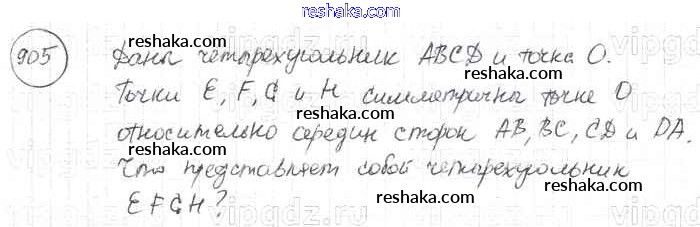 reshaka.com
905 Даны четырехугольник ABCD и точка O.
Точки E, F, G и H симметричны точке O
относительно середин сторон AB, BC, CD и DA.
Что представляет собой четырехугольник
EFGH?
reshaka.com
reshaka.com
reshaka.com
reshaka.com
reshaka.com
reshaka.com
reshaka.com
reshaka.com